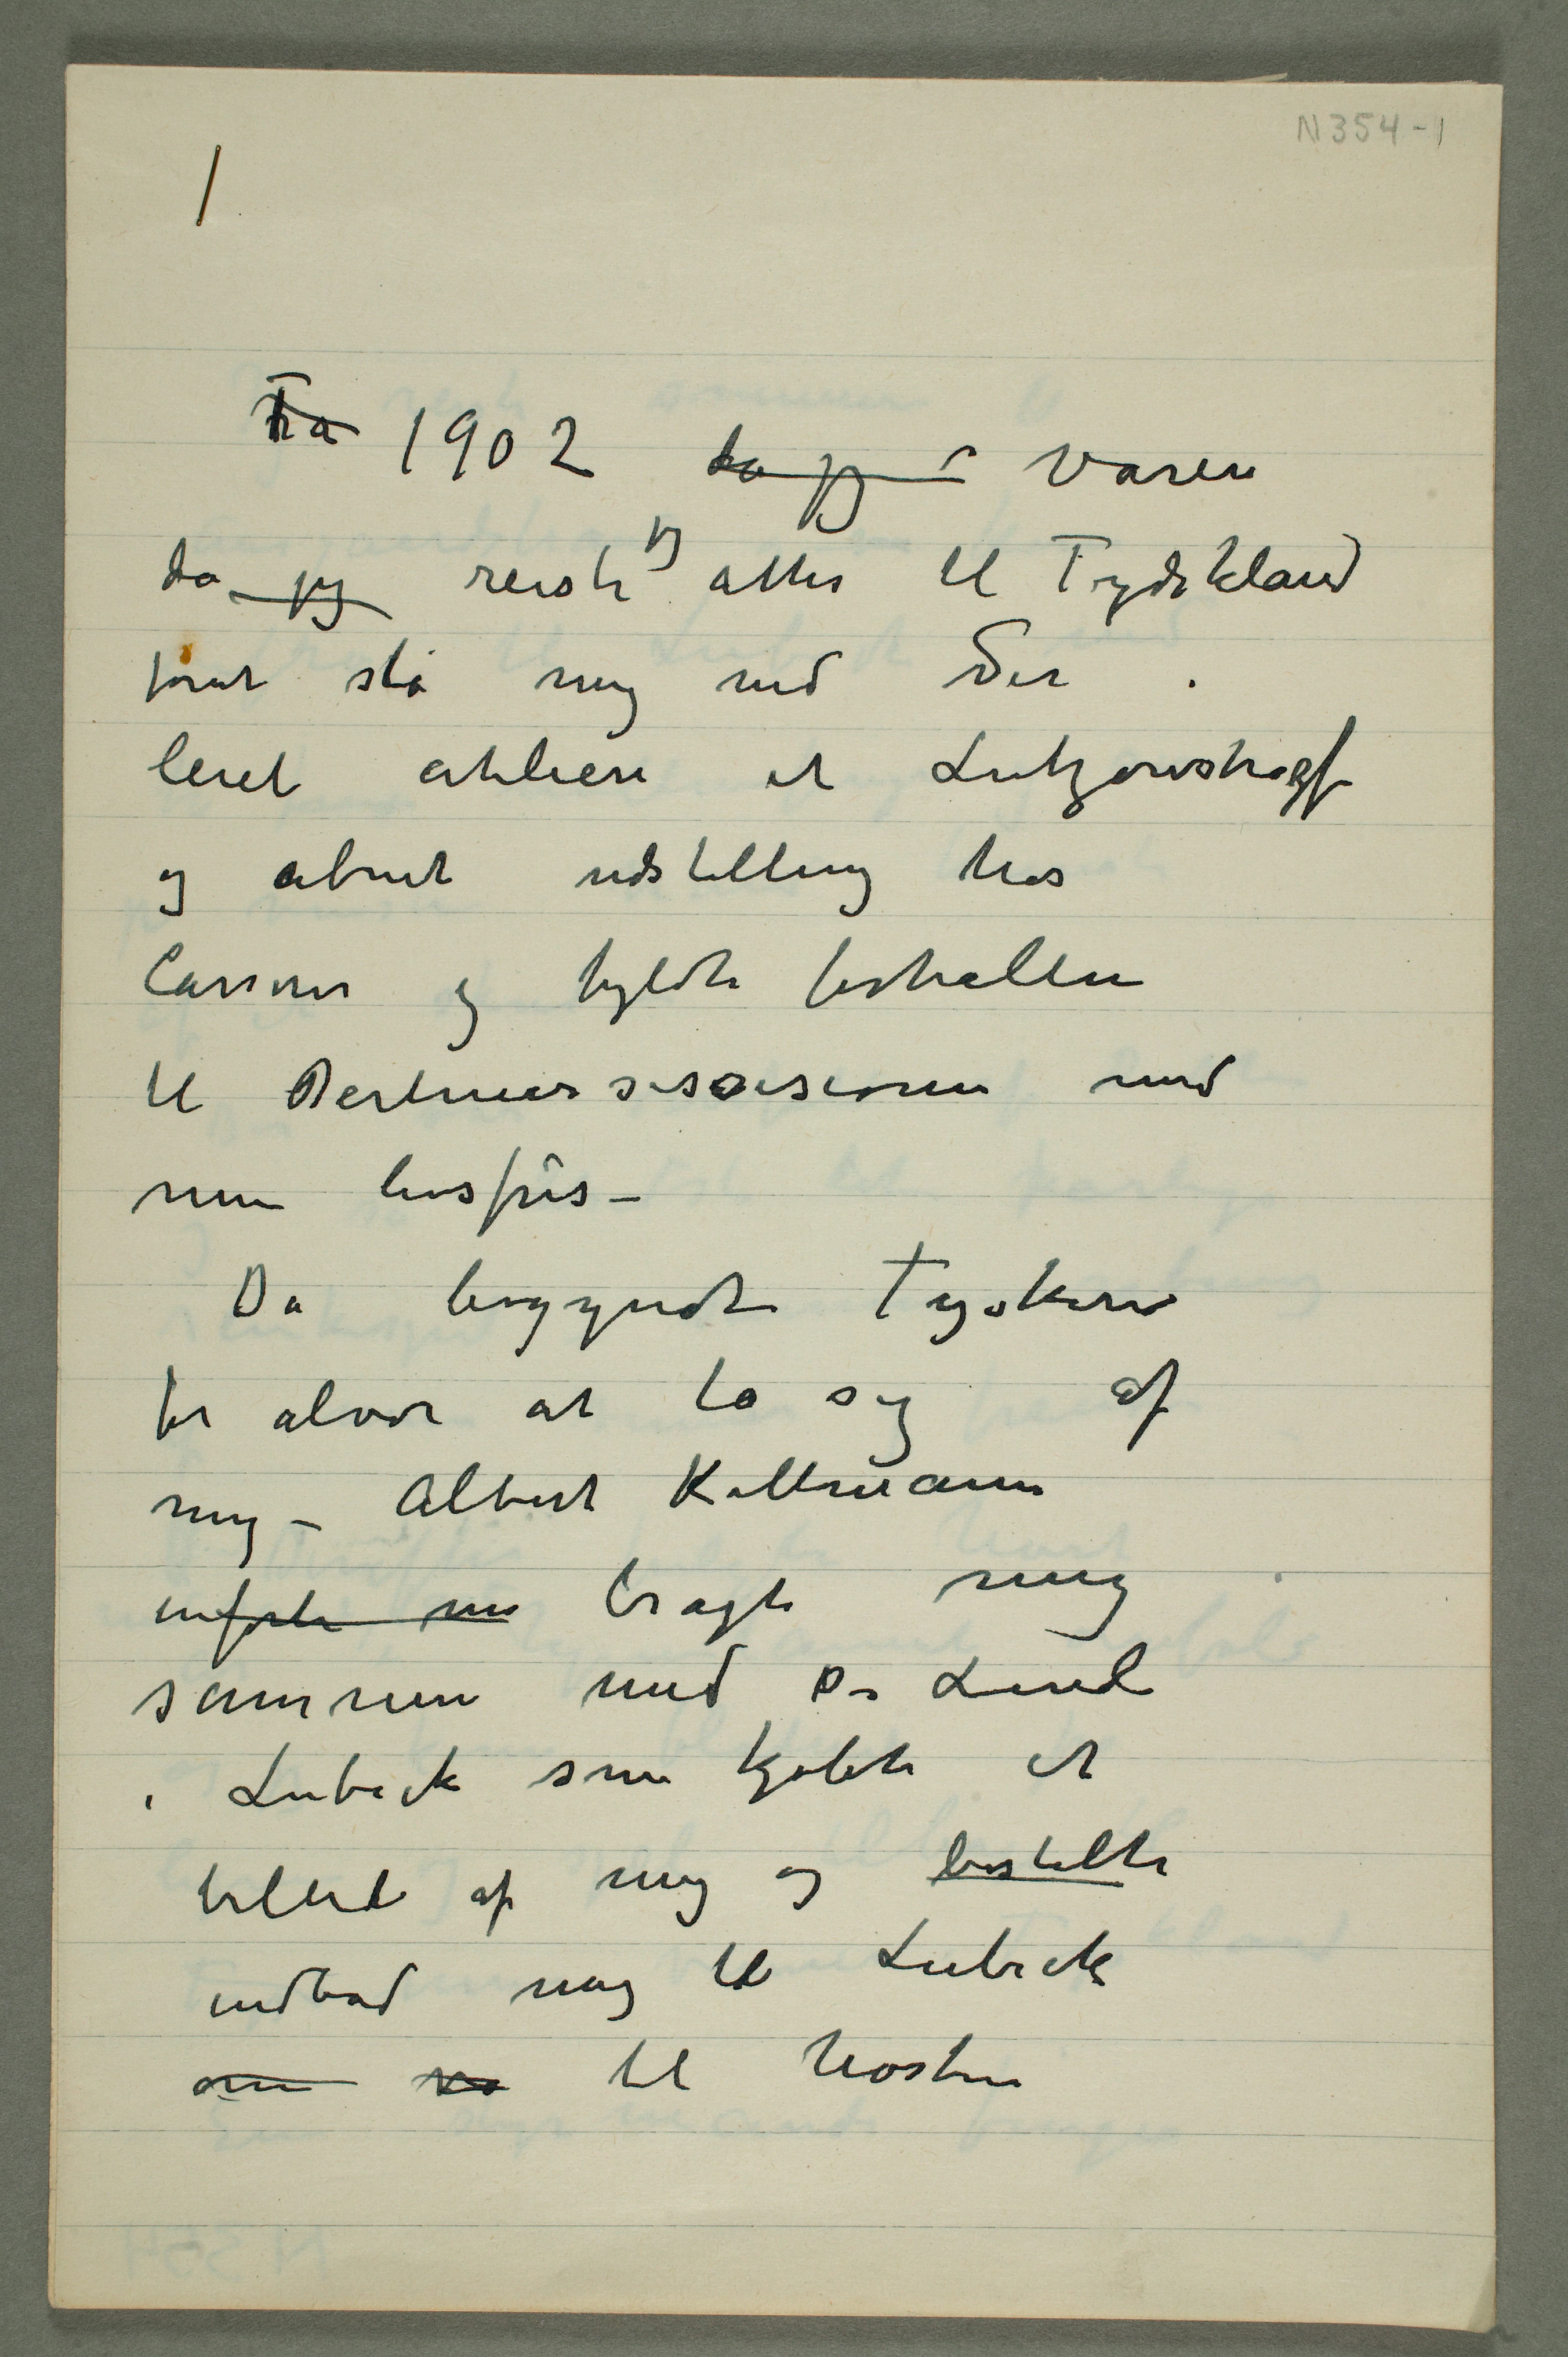 N 354-1
1
Fra 1902 da jeg i våren
da jeg reiste jeg atter til Tydskland
forat slå mig ned der .
leiet atelier i Lutzowstrasse
og åbnet udstilling hos
Cassirer og fyldte forhallen
til Berlinersesesionen med
min livsfris –
Da begyndte Tyskere
for alvor at ta sig af
mig – Albert Kollmann
inførte me bragte mig
sammen med Dr Linde
i Lubeck som kjøbte et
billed af mig og bestilte
indbød mig til Lubeck
om til høsten